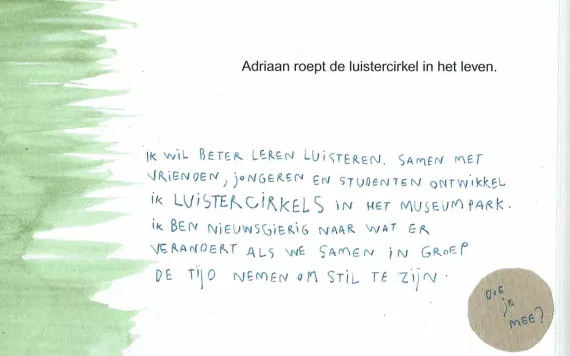 Adriaan roept de luistercirkel in het leven.
IK WIL BETER LEREN LUISTEREN. SAMEN MET
VRIENDEN, JONGEREN EN STUDENTEN ONTWIKKEL
IK LUISTERCIRKELS IN HET MUSEUMPARK.
IK BEN NIEUWSGIERIG NAAR WAT ER
VERANDERT ALS WE SAMEN IN GROEP
DE TIJD NEMEN OM STIL TE ZIJN.
DOE
JE
MEE?